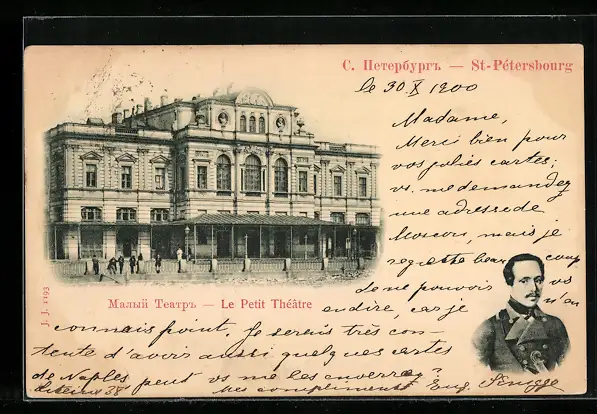 С. Петербургъ — St-Pétersbourg
le 30. X 1900
Madame,
Merci bien pour
vos jolies cartes;
vs. me demandez
une adresse de
Moscou, mais je
regrette beaucoup
de ne pouvoir vs
en dire, car je n'en
connais point. Je serais très con-
tente d'avoir aussi quelques cartes
de Naples, peut vs me les envoyer?
Mes compliments Eug.
Малый Театръ — Le Petit Théâtre
J. J. 1193